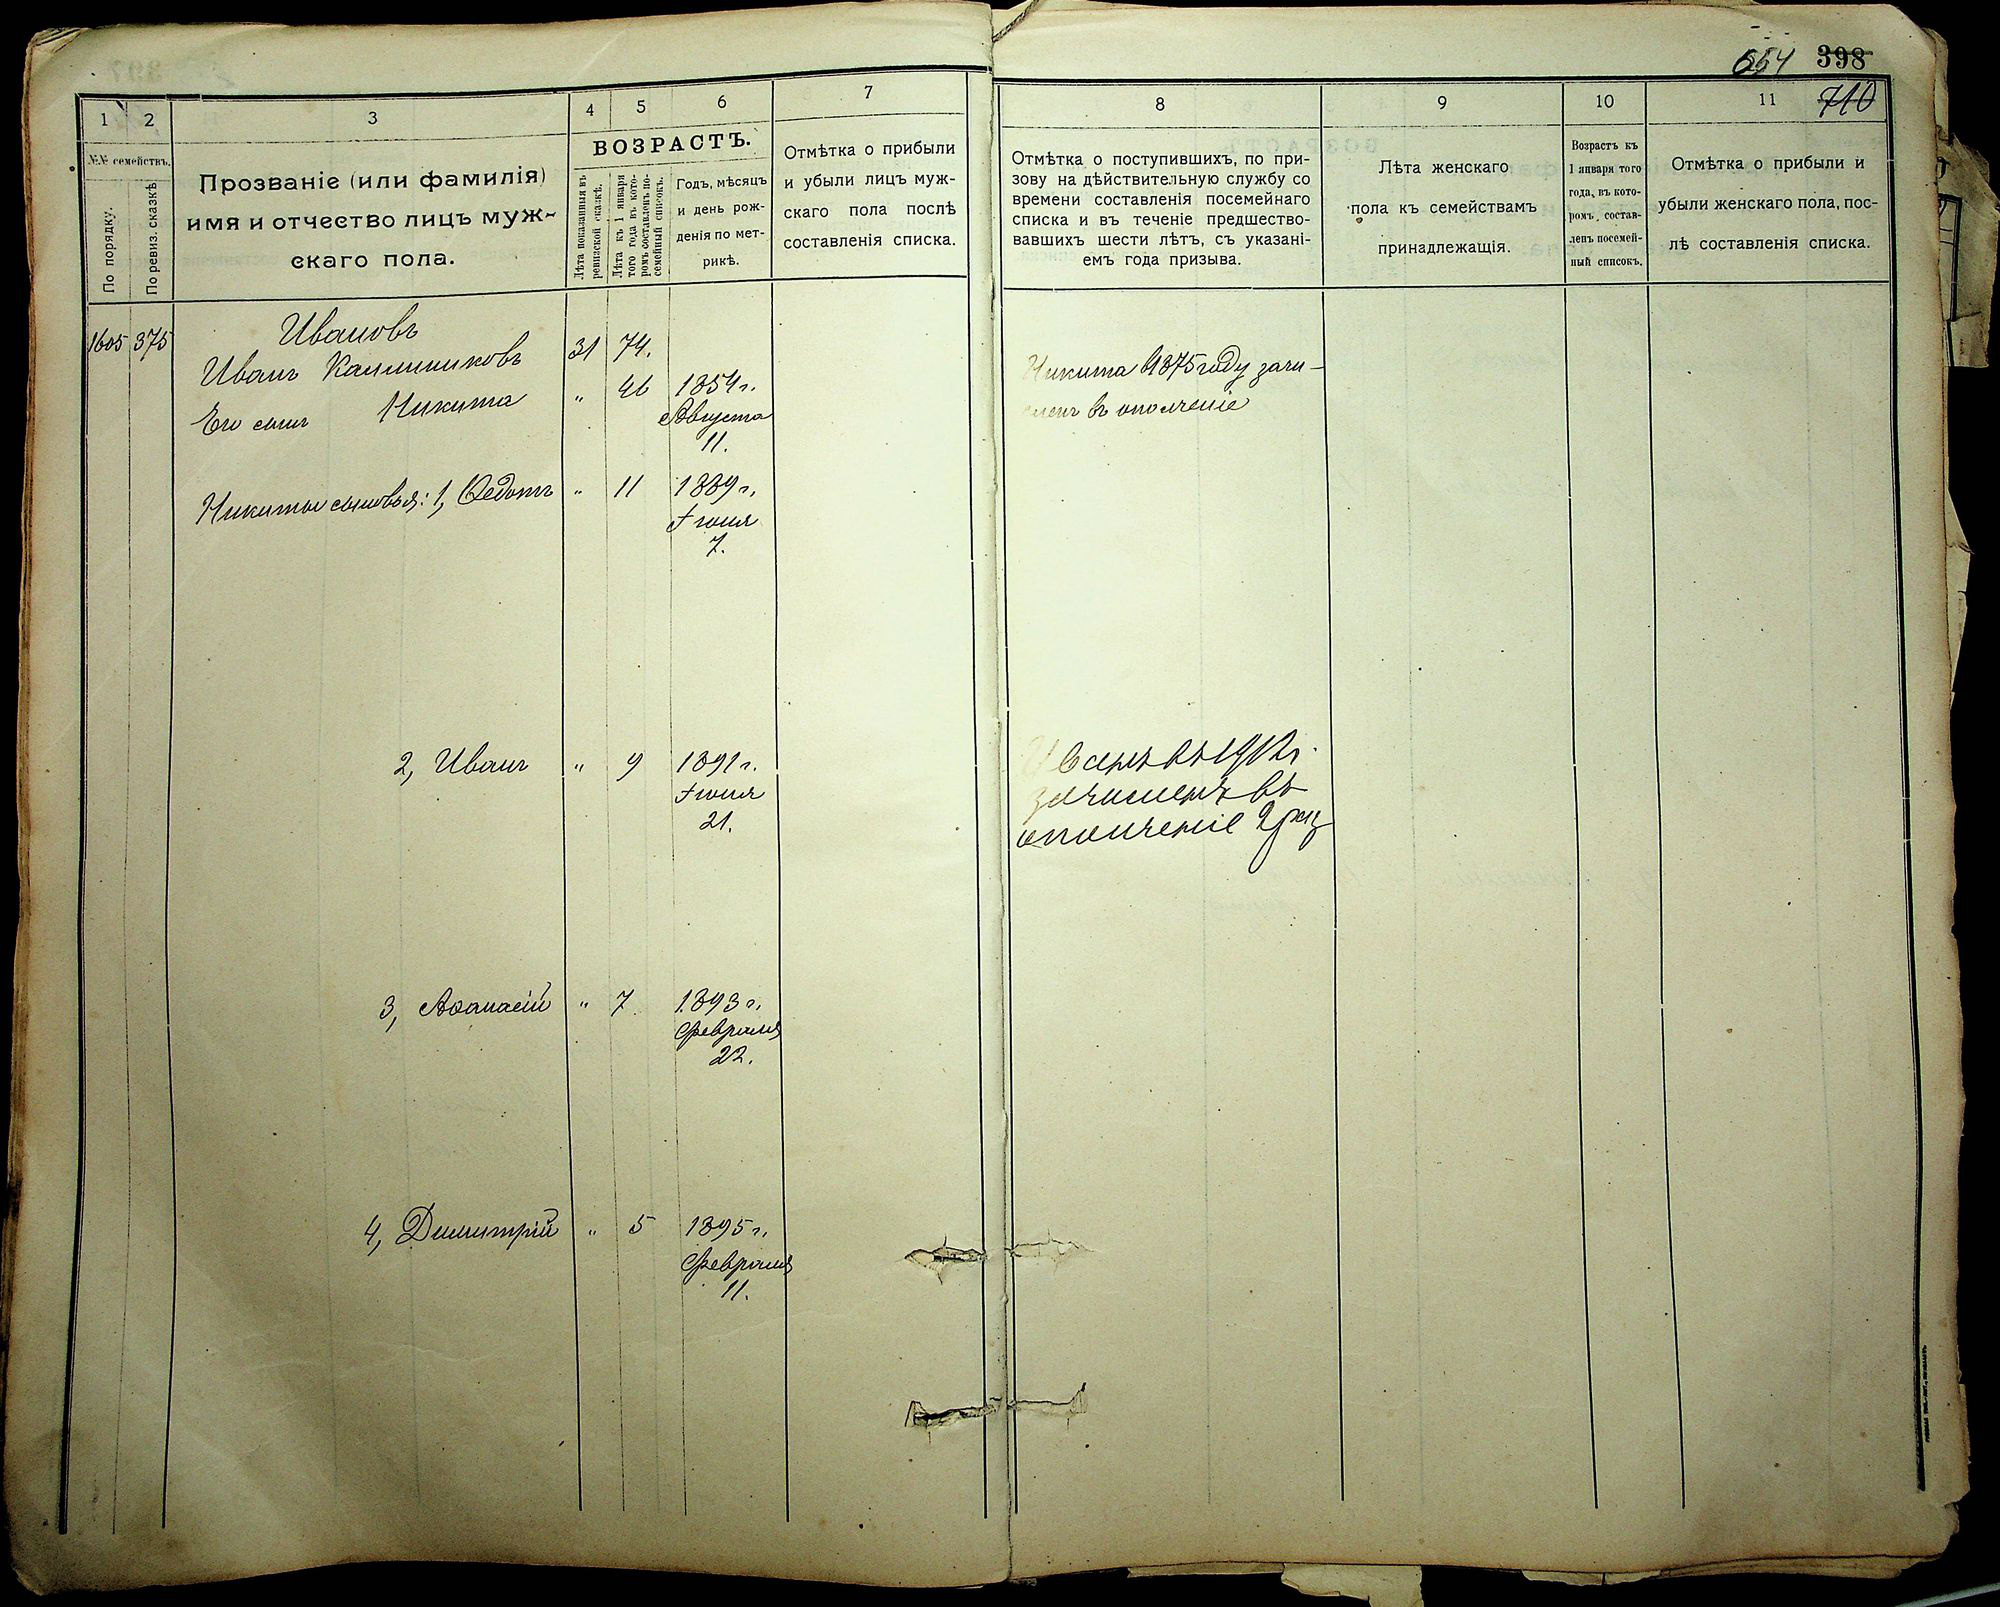 654 398
710
1 2 3 4 5 6 7
№№ семействъ.
По порядку.
По ревиз. сказкѣ
Прозваніе (или фамилія)
имя и отчество лицъ муж-
скаго пола.
ВОЗРАСТЪ.
Лѣта показанныя въ
ревизской сказкѣ.
Лѣта къ 1 января
того года въ кото-
ромъ составленъ по-
семейный списокъ.
Годъ, мѣсяцъ
и день рож-
денія по мет-
рикѣ.
Отмѣтка о прибыли
и убыли лицъ муж-
скаго пола послѣ
составленія списка.
8 9 10 11
Отмѣтка о поступившихъ, по при-
зову на дѣйствительную службу со
времени составленія посемейнаго
списка и въ теченіе предшество-
вавшихъ шести лѣтъ, съ указані-
емъ года призыва.
Лѣта женскаго
пола къ семействамъ
принадлежащія.
Возрастъ къ
1 января того
года, въ кото-
ромъ состав-
ленъ посемей-
ный списокъ.
Отмѣтка о прибыли и
убыли женскаго пола, пос-
лѣ составленія списка.
1605 375 Ивановъ
Иванъ Калинниковъ 31 74.
Его сынъ Никита " 46 1854 г.
Августа
11.
Никита в 1875 году зачи-
сленъ въ ополченіе
Никиты сыновья: 1, Ѳедотъ " 11 1889 г.
Іюня
7.
2, Иванъ " 9 1891 г.
Іюня
21.
Иванъ въ 1912 г.
зачисленъ въ
ополченіе 2 раз
3, Аѳанасій " 7 1893 г.
Февраля
22.
4, Димитрій " 5 1895 г.
Февраля
11.